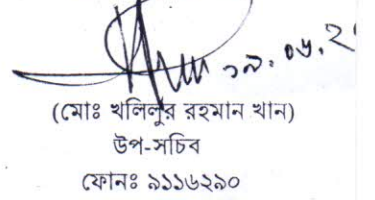 ১৯.০৬.২
(মোঃ খলিলুর রহমান খান)
উপ-সচিব
ফোনঃ ৯১১৬২৯০